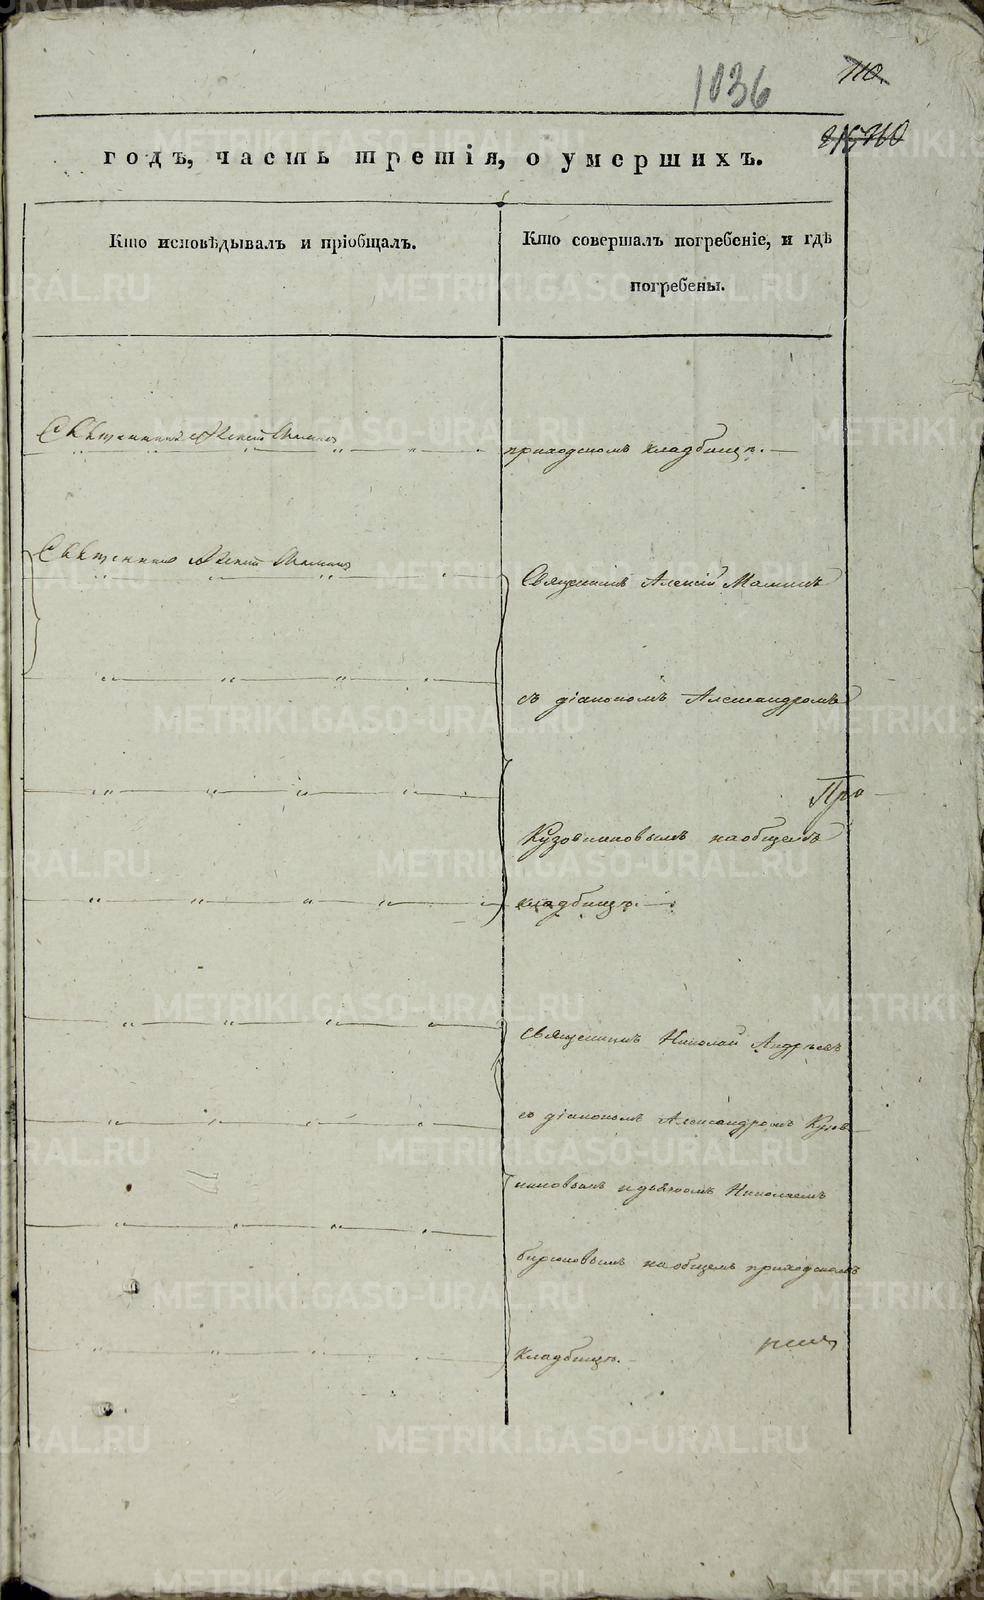 1036
110.
годъ, часть третія, о умершихъ.
Кто исповѣдывалъ и пріобщалъ.
Кто совершалъ погребеніе, и гдѣ
погребены.
Священникъ Алексій Маминъ
приходскомъ кладбищѣ.
Священникъ Алексій Маминъ
Священникъ Алексій Маминъ
съ діакономъ Александромъ
Про
Кузовниковымъ на общемъ
кладбищѣ.
Священникъ Николай Андреевъ
со діакономъ Александромъ Кузов
никовымъ и дьячкомъ Николаемъ
бирюковымъ на общемъ приходскомъ
кладбищѣ.
METRIKI.GASO-URAL.RU